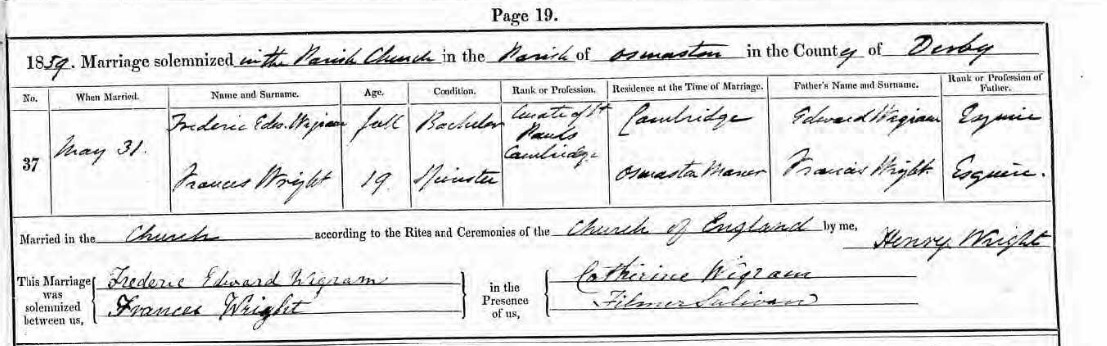 Page 19.
1859. Marriage solemnized in the Parish Church in the Parish of Osmaston in the County of Derby
No. When Married. Name and Surname. Age. Condition. Rank or Profession. Residence at the Time of Marriage. Father's Name and Surname. Rank or Profession of Father.
37 May 31. Frederic Edw. Wigram full Bachelor Curate of St Pauls Cambridge Cambridge Edward Wigram Esquire
Frances Wright 19. Spinster Osmaston Manor Francis Wright Esquire.
Married in the Church according to the Rites and Ceremonies of the Church of England by me, Henry Wright
This Marriage was solemnized between us, Frederic Edward Wigram in the Presence of us, Catherine Wigram
Frances Wright Filmer Sulivan